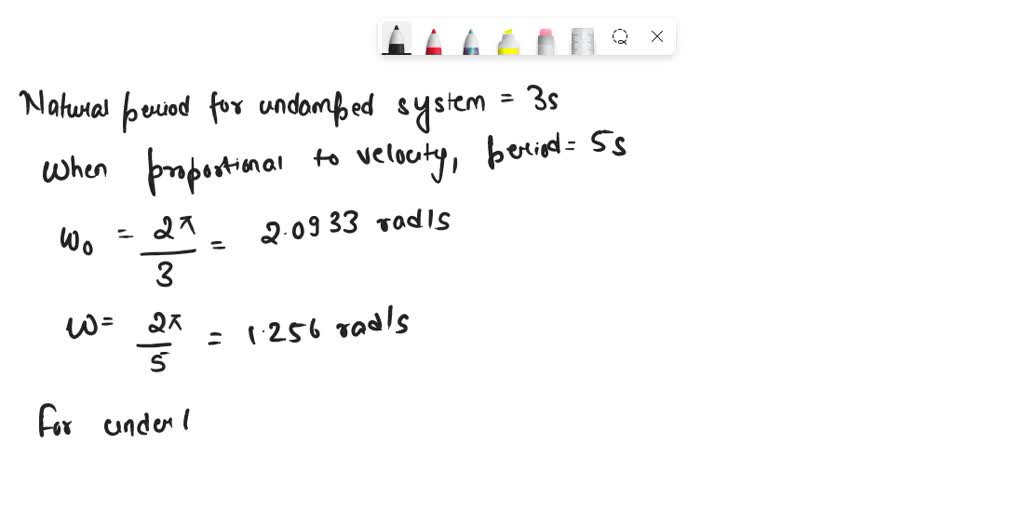 Natural period for undamped system = 3s
When proportional to velocity, period = 5s
ω₀ = 2π/3 = 2.0933 rad/s
ω = 2π/5 = 1.256 rad/s
For under(